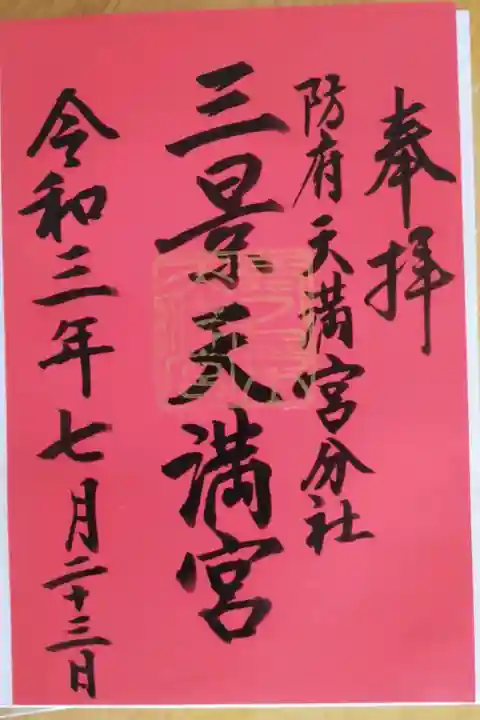 奉拝
防府天満宮分社
三景天満宮
令和三年七月二十三日